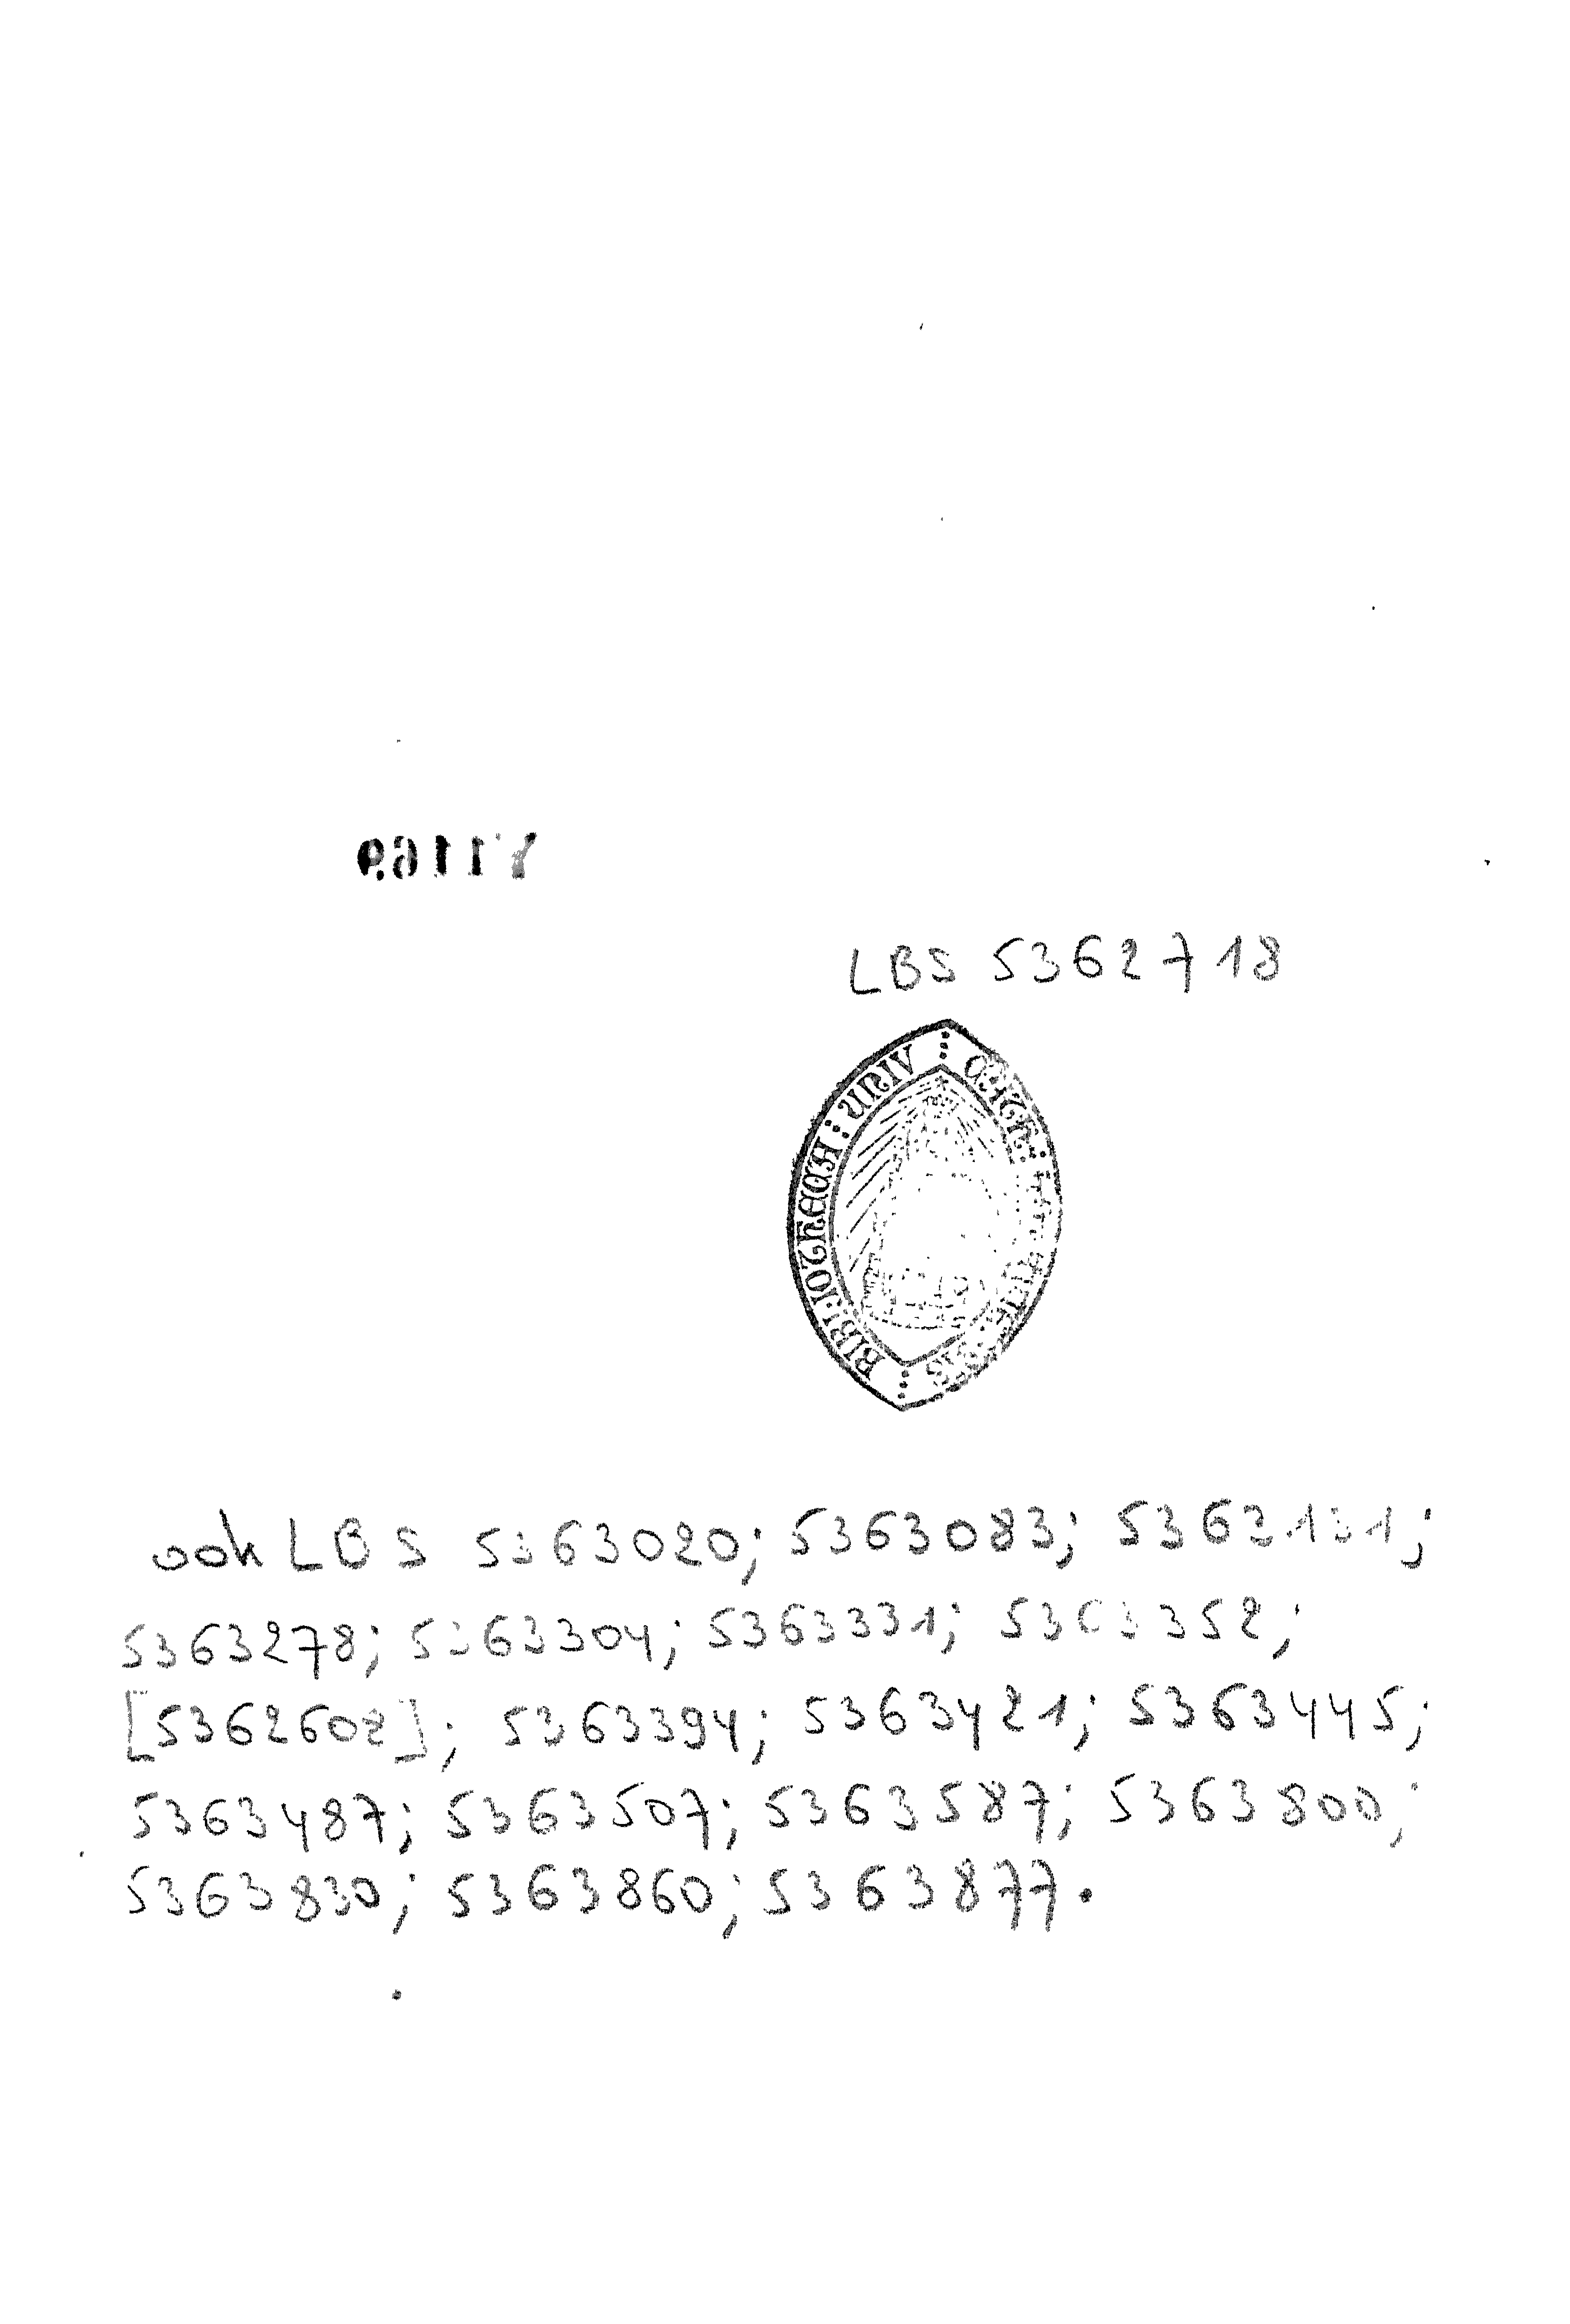 LBS 5362718
BIBLIOTHECA : UNIV
ook LBS 5363020; 5363083; 5363131;
5363278; 5363304; 5363331; 5363352;
[5362608]; 5363394; 5363421; 5363445;
5363487; 5363507; 5363587; 5363800;
5363830; 5363860; 5363877.